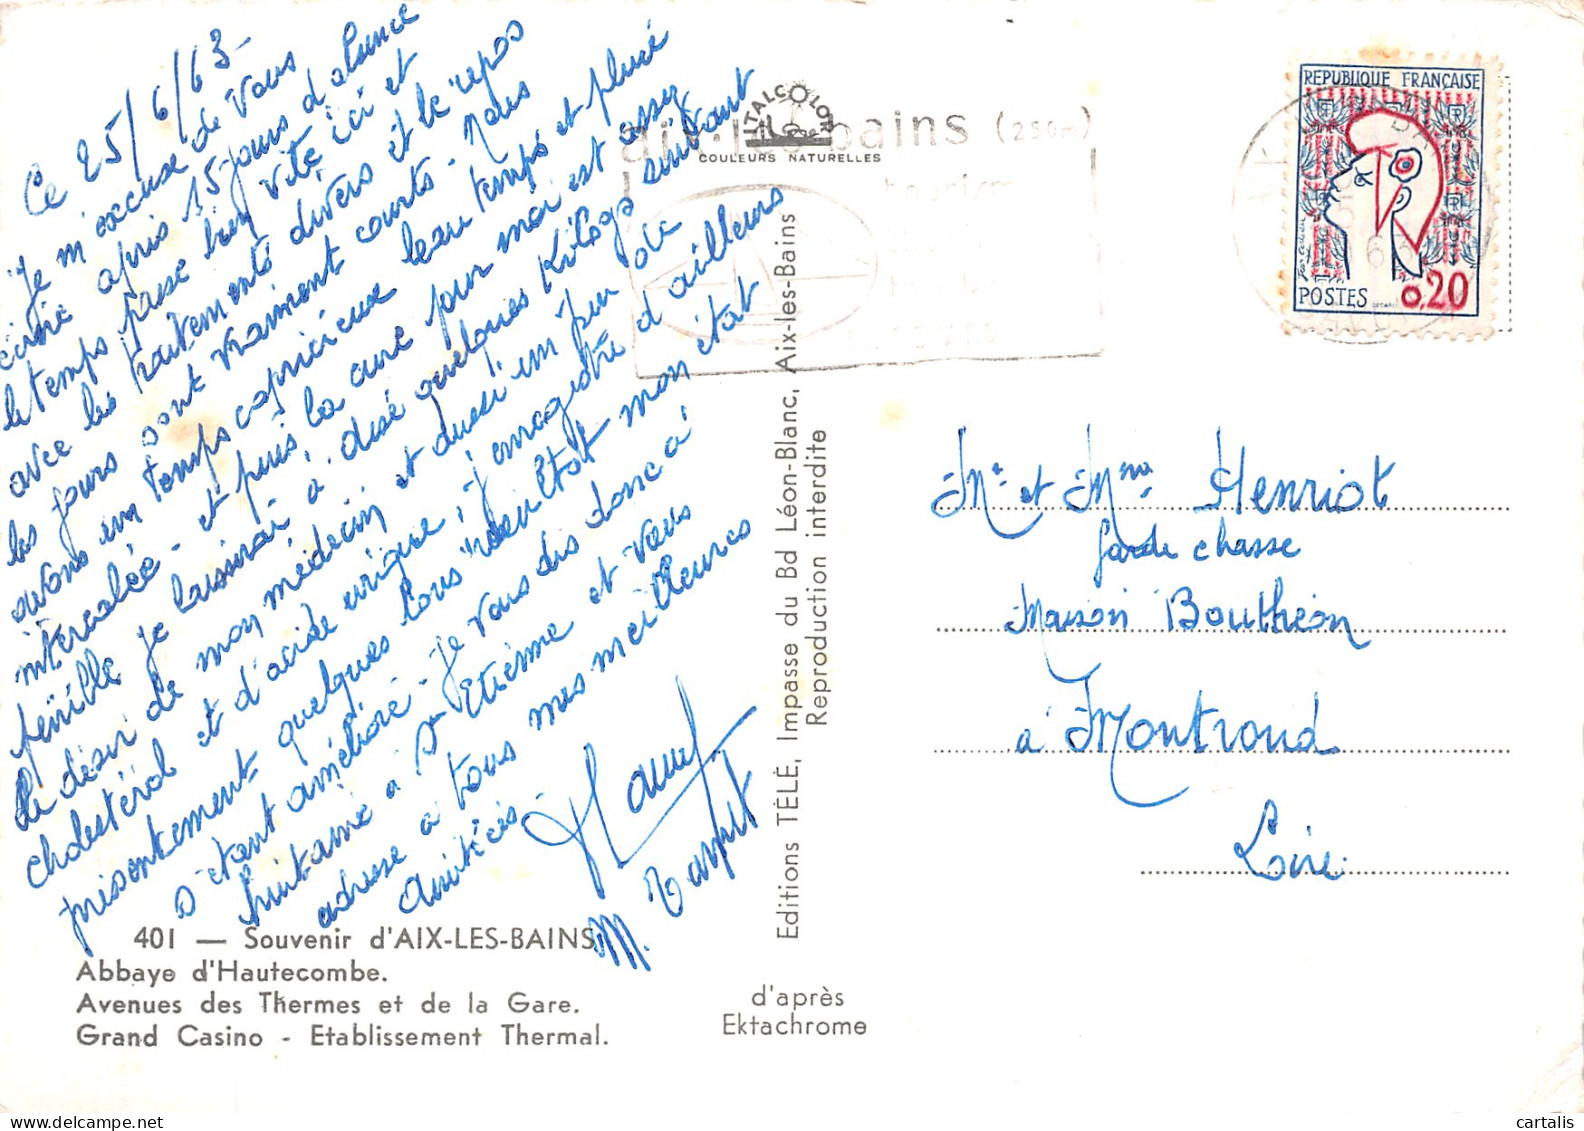 Ce 25/6/63-
Je m'excuse de vous
écrire après 15 jours d'absence
le temps passe bien vite ici et
avec les traitements divers et le repos
les jours sont vraiment courts - Nous
avons un temps capricieux beau temps et pluie
intercalée - et puis, la cure pour moi est assez
pénible je laisserai à Aix quelques Kilogs suivant
le désir de mon médecin et aussi un peu de
cholestérol et d'acide urique, j'enregistre d'ailleurs
présentement quelques bons résultats mon état
s'étant amélioré - Je vous dis donc à
huitaine à St Etienne et vous
adresse à tous mes meilleures
amitiés.
M.
ITALCOLOR
COULEURS NATURELLES
aix-les-bains (250m)
REPUBLIQUE FRANÇAISE
POSTES 0,20
Mr et Mme Henriot
Garde chasse
Maison Bouthéon
à Montrond
Loire.
Editions TÉLÉ, Impasse du Bd Léon-Blanc, Aix-les-Bains
Reproduction interdite
401 — Souvenir d'AIX-LES-BAINS
Abbaye d'Hautecombe.
Avenues des Thermes et de la Gare.
Grand Casino - Etablissement Thermal.
d'après
Ektachrome
cartalis